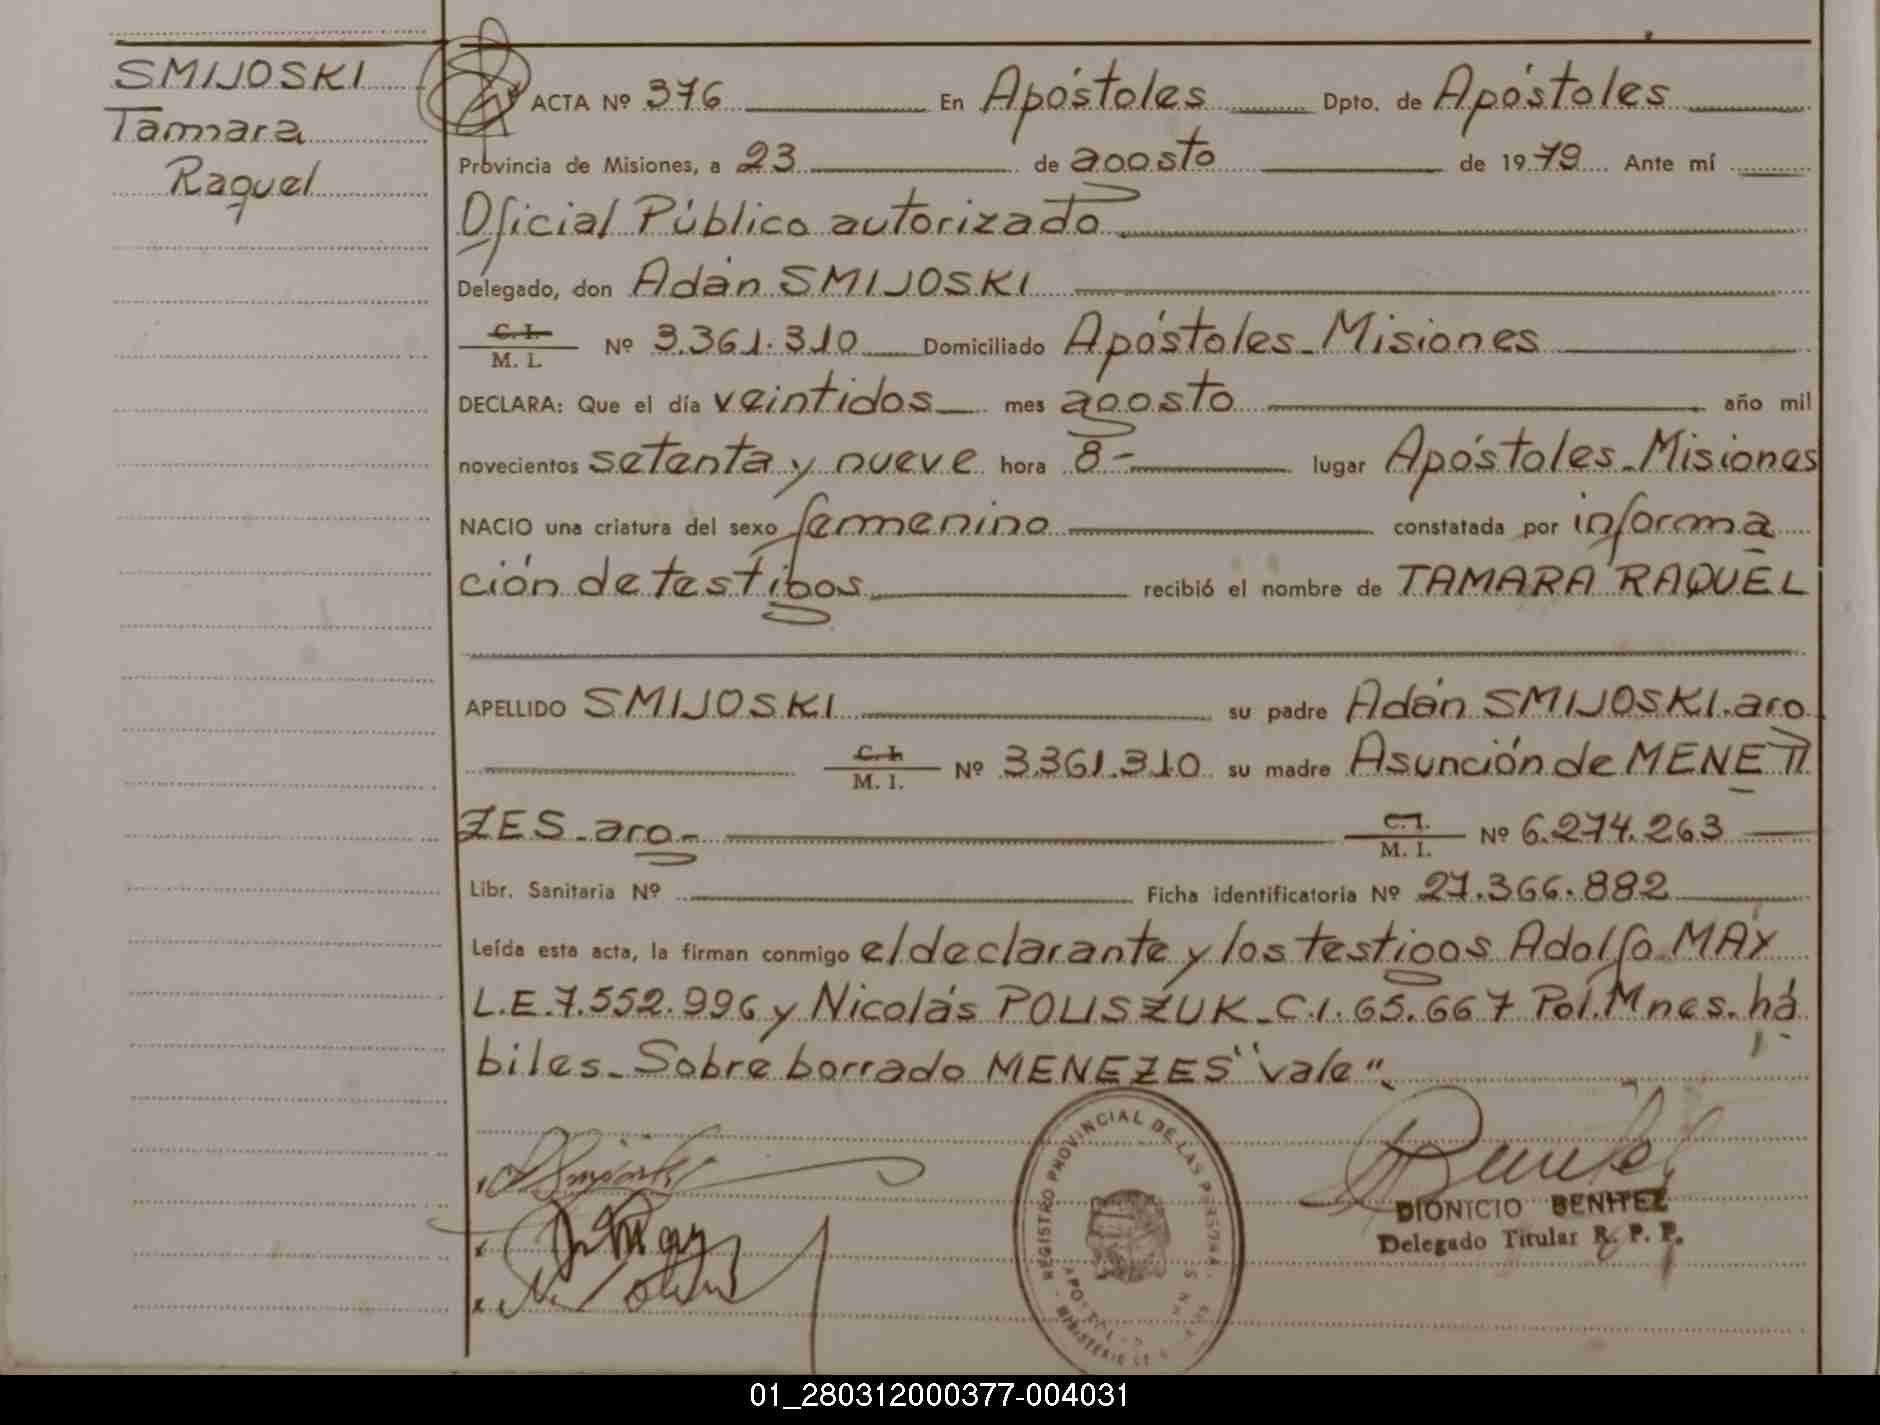 SMIJOSKI
Tamara
Raquel
ACTA Nº 376 En Apóstoles Dpto. de Apóstoles
Provincia de Misiones, a 23 de agosto de 1979 Ante mí
Oficial Público autorizado
Delegado, don Adán SMIJOSKI
C. I.
M. I. Nº 3.361.310 Domiciliado Apóstoles-Misiones
DECLARA: Que el día veintidos mes agosto año mil
novecientos setenta y nueve hora 8- lugar Apóstoles-Misiones
NACIO una criatura del sexo femenino constatada por informa
ción de testigos recibió el nombre de TAMARA RAQUEL
APELLIDO SMIJOSKI su padre Adán SMIJOSKI.arg
C. I.
M. I. Nº 3.361.310 su madre Asunción de MENE
ZES-arg- C. I.
M. I. Nº 6.274.263
Libr. Sanitaria Nº Ficha identificatoria Nº 27.366.882
Leída esta acta, la firman conmigo el declarante y los testigos Adolfo MAY
L.E.7.552.996 y Nicolás POLISZUK-C.I.65.667 Pol.Mnes.há
biles-Sobre borrado MENEZES "vale".
REGISTRO PROVINCIAL DE LAS PERSONAS
DIONICIO BENITEZ
Delegado Titular R. P. P.
01_280312000377-004031